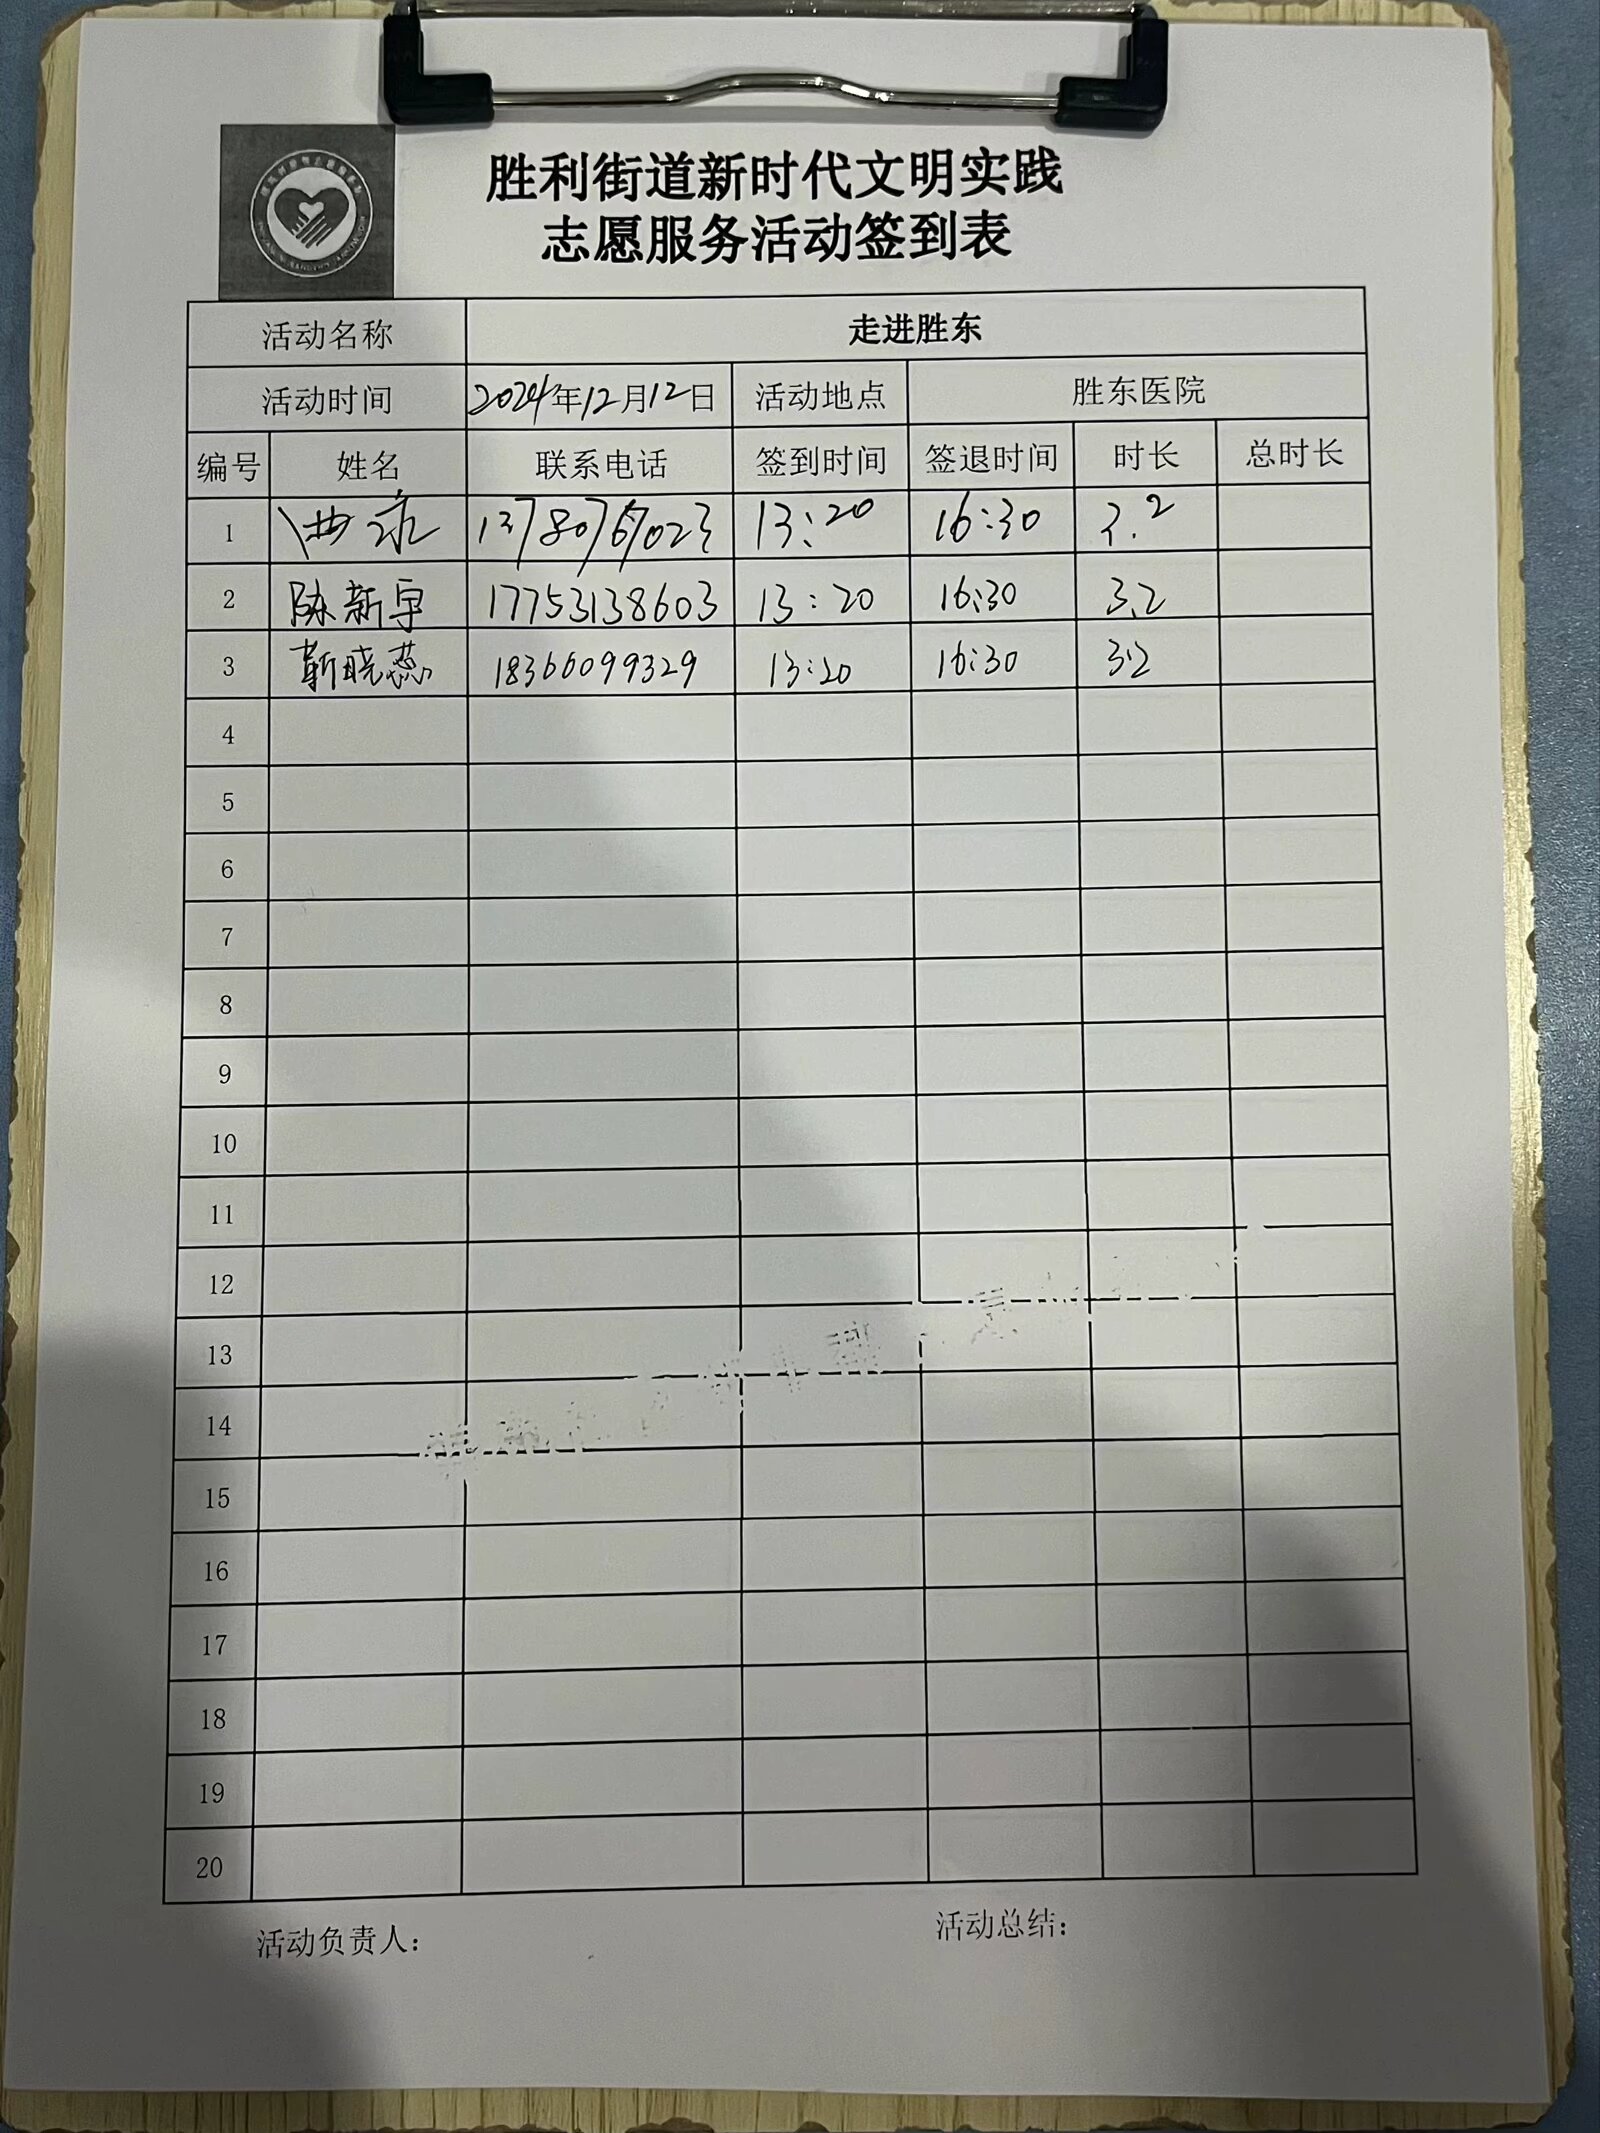 胜利街道新时代文明实践
志愿服务活动签到表
活动名称 走进胜东
活动时间 2024年12月12日 活动地点 胜东医院
编号 姓名 联系电话 签到时间 签退时间 时长 总时长
1 13780767023 13:20 16:30 3.2
2 陈新宇 17753138603 13:20 16:30 3.2
3 靳晓蕊 18366099329 13:20 16:30 3.2
4
5
6
7
8
9
10
11
12
13
14
15
16
17
18
19
20
活动负责人: 活动总结: